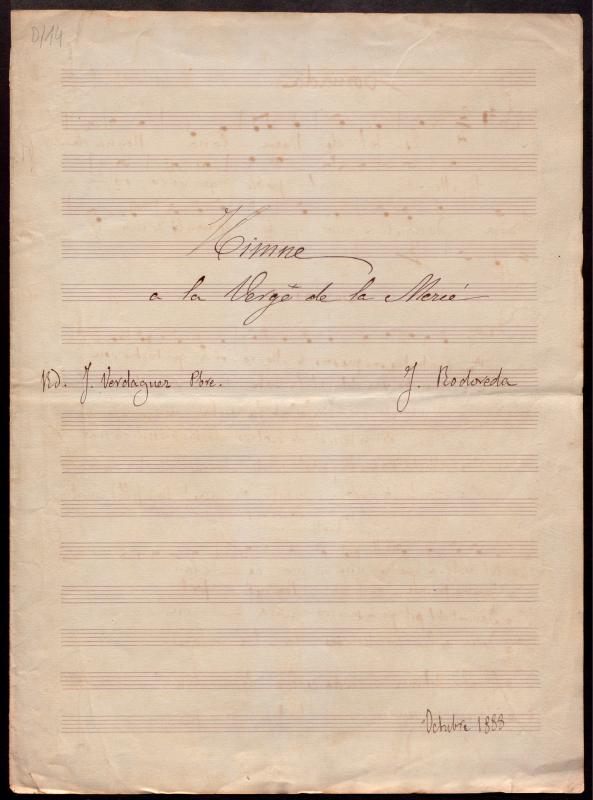 D/14
Himne
a la Vergê de la Mercé
Rd. J. Verdaguer Pbre. J. Rodoreda
Octubre 1888